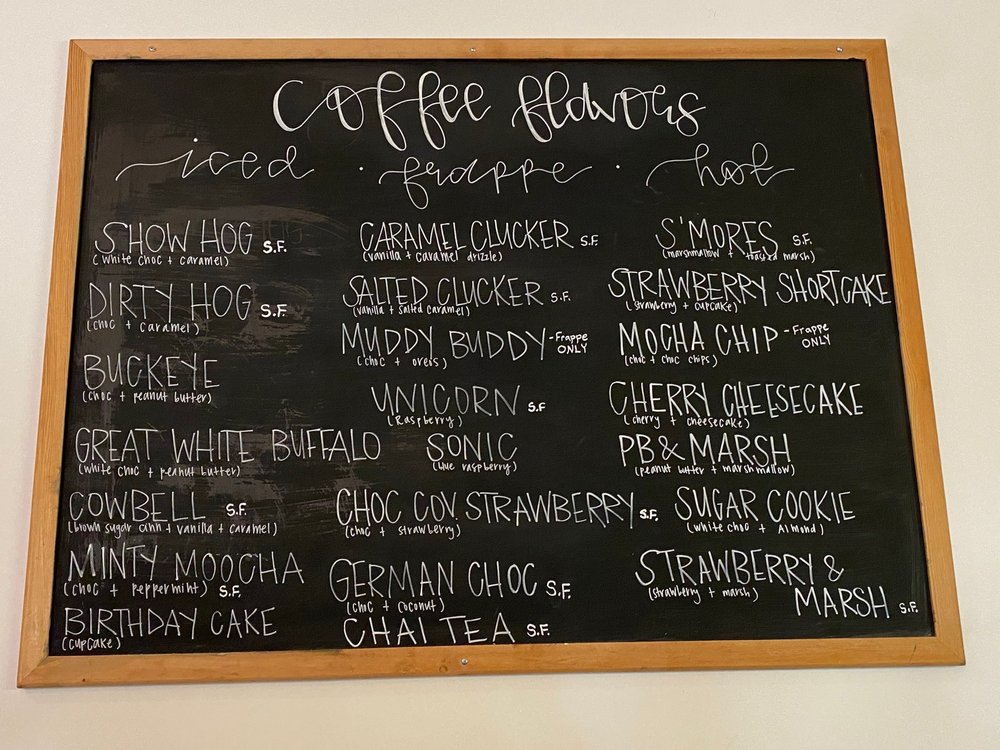 coffee flavors
iced · frappe · hot
SHOW HOG S.F.
(white choc + caramel)
DIRTY HOG S.F.
(choc + caramel)
BUCKEYE
(choc + peanut butter)
GREAT WHITE BUFFALO
(white choc + peanut butter)
COWBELL S.F.
(brown sugar cinn + vanilla + caramel)
MINTY MOOCHA
(choc + peppermint) S.F.
BIRTHDAY CAKE
(cupcake)
CARAMEL CLUCKER S.F.
(vanilla + caramel drizzle)
SALTED CLUCKER S.F.
(vanilla + salted caramel)
MUDDY BUDDY -Frappe ONLY
(choc + oreos)
UNICORN S.F
(Raspberry)
SONIC
(blue raspberry)
CHOC COV. STRAWBERRY S.F.
(choc + strawberry)
GERMAN CHOC S.F.
(choc + coconut)
CHAI TEA S.F.
S'MORES S.F.
(marshmallow + toasted marsh)
STRAWBERRY SHORTCAKE
(strawberry + cupcake)
MOCHA CHIP -Frappe ONLY
(choc + choc chips)
CHERRY CHEESECAKE
(cherry + cheesecake)
PB & MARSH
(peanut butter + marshmallow)
SUGAR COOKIE
(white choc + Almond)
STRAWBERRY &
(strawberry + marsh)
MARSH S.F.